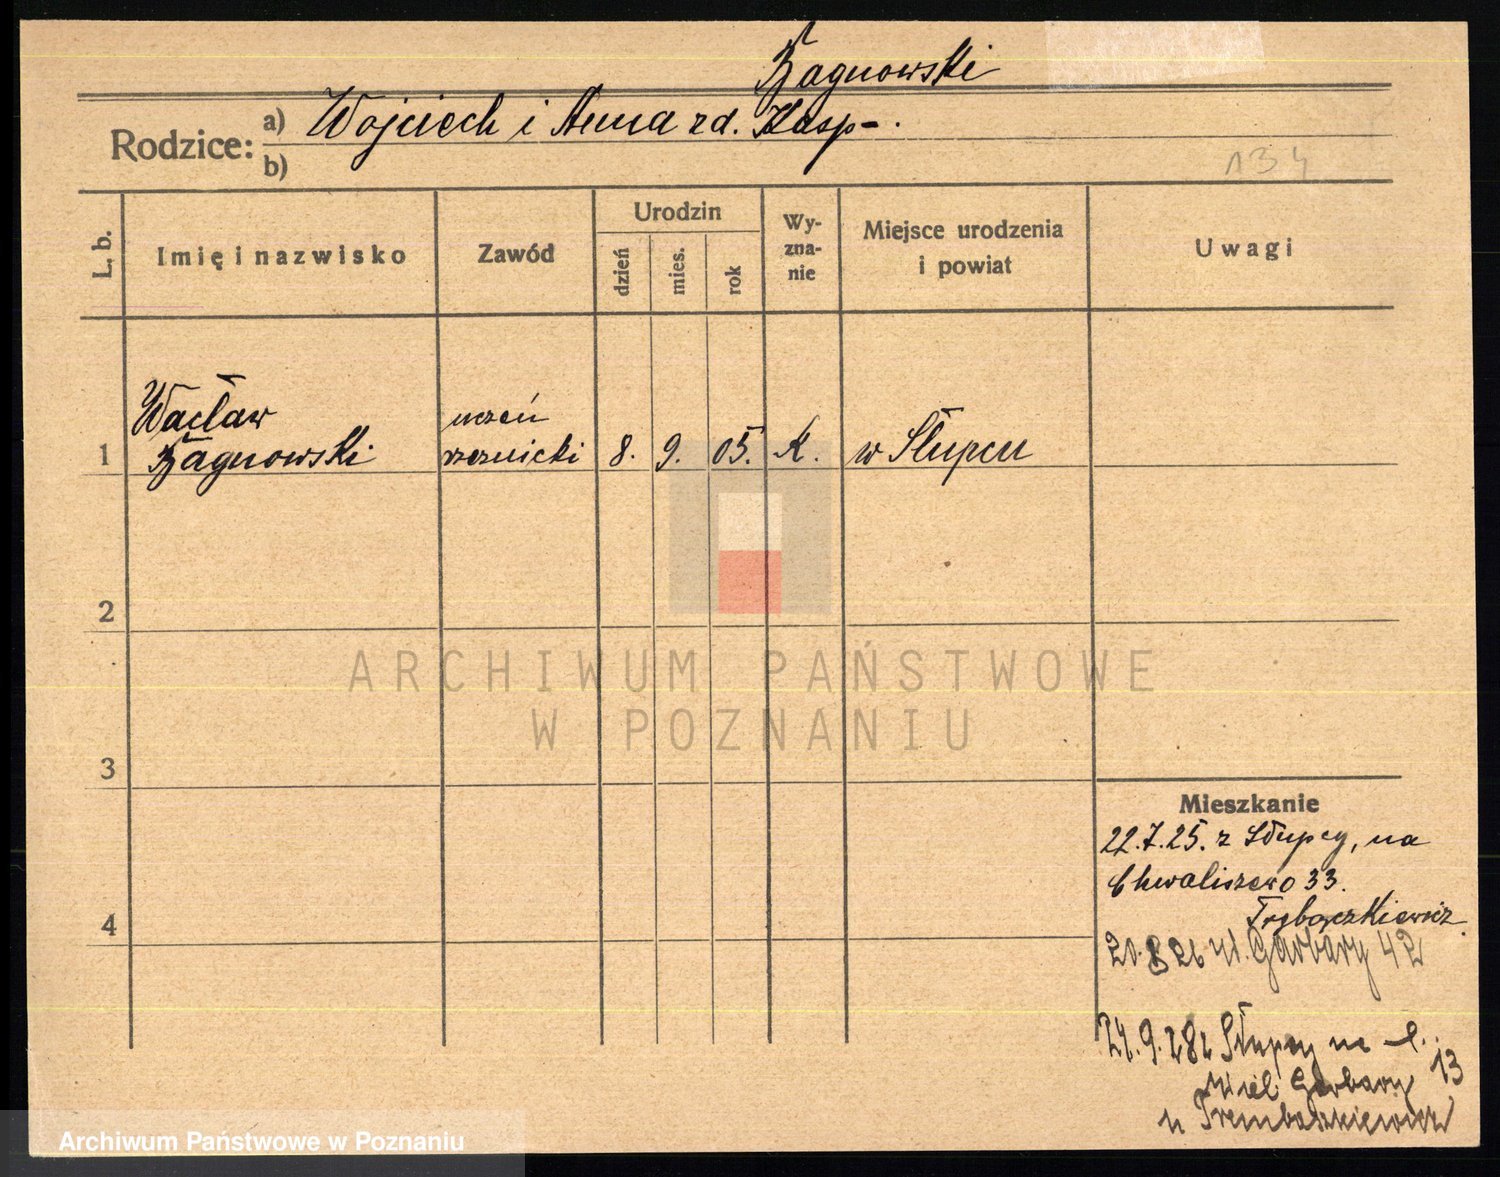 Bagnowski
Rodzice: a) Wojciech i Anna zd. Kasp-.
b)
134
L. b.
Imię i nazwisko
Zawód
Urodzin
dzień
mies.
rok
Wy-
zna-
nie
Miejsce urodzenia
i powiat
Uwagi
Wacław
Bagnowski
uczeń
rzeźnicki
1
8. 9. 05. K. w Słupcu
2
3
4
Mieszkanie
22.7.25. z Słupcy, na
Chwaliszewo 33.
Trybaczkiewicz.
20.8 26 ul. Garbary 42
24.9.28 z Słupcy na
Wiel Garbary 13
u Trembaczkiewicz
ARCHIWUM PAŃSTWOWE
W POZNANIU
Archiwum Państwowe w Poznaniu